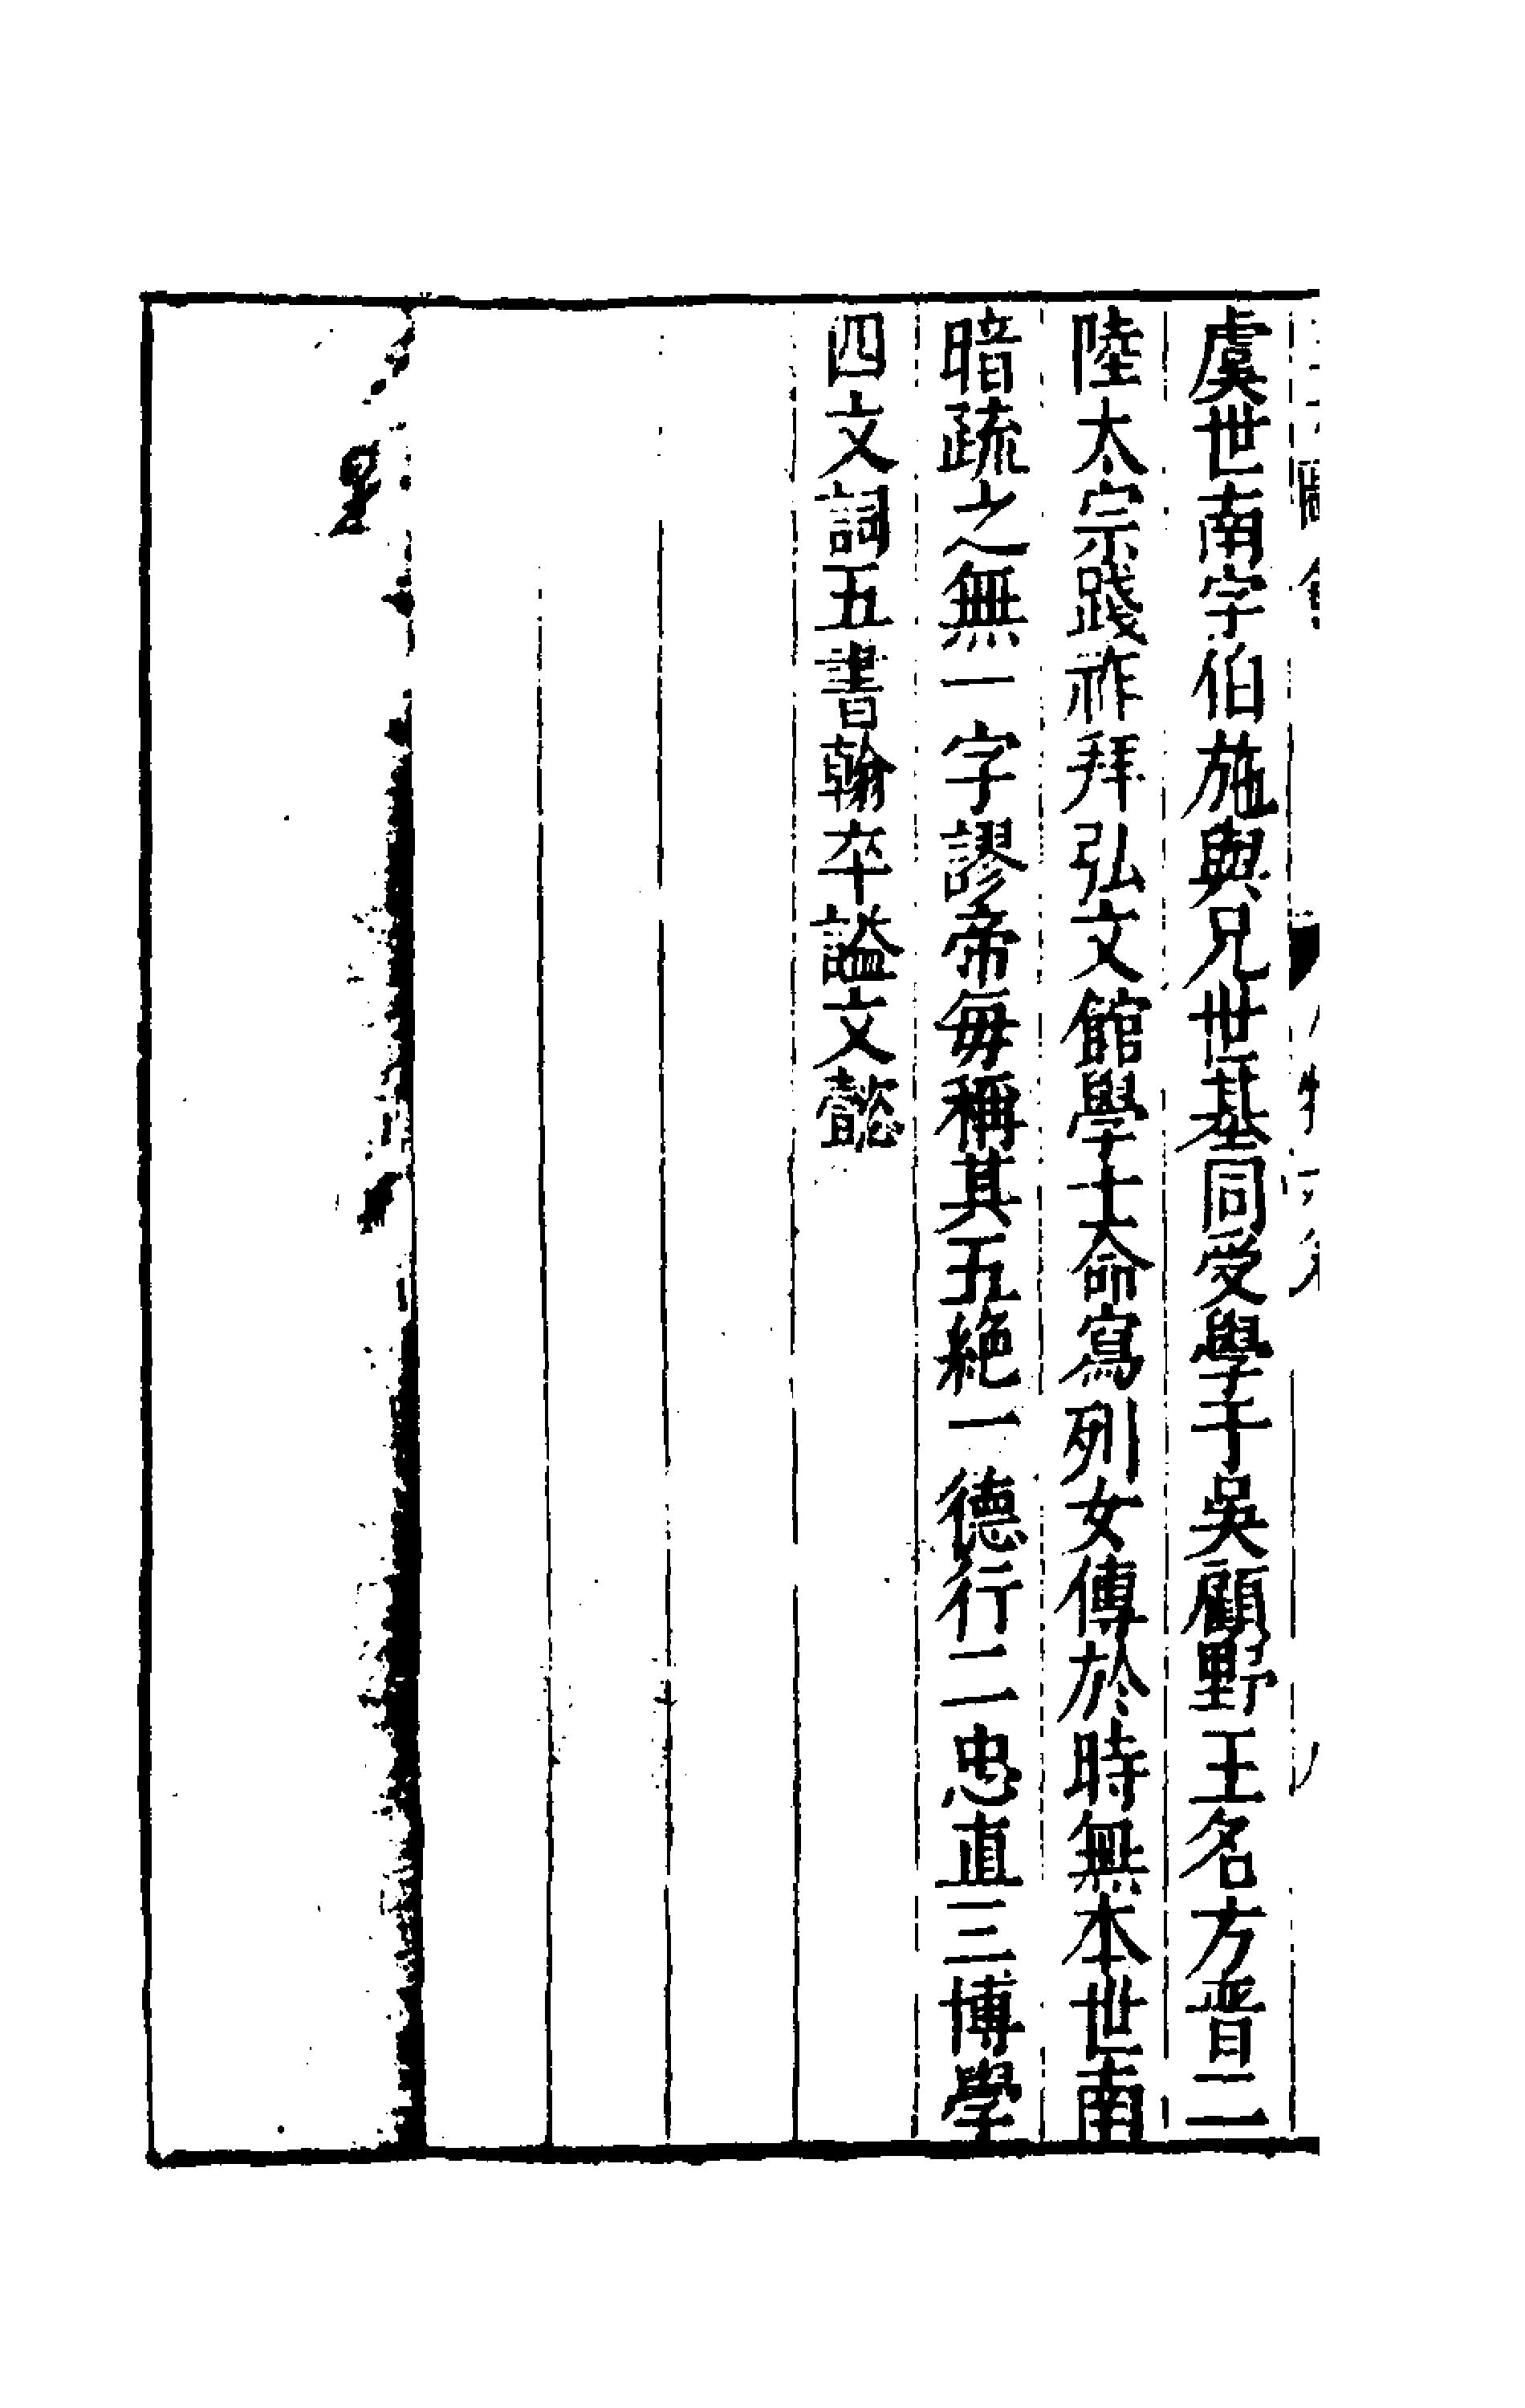 虞世南字伯施與兄世基同受學于吳顧野王名方晋二
陸太宗踐祚拜弘文館學士命寫列女傳於時無本世南
暗疏之無一字謬帝每稱其五絶一德行二忠直三博學
四文詞五書翰卒謚文懿